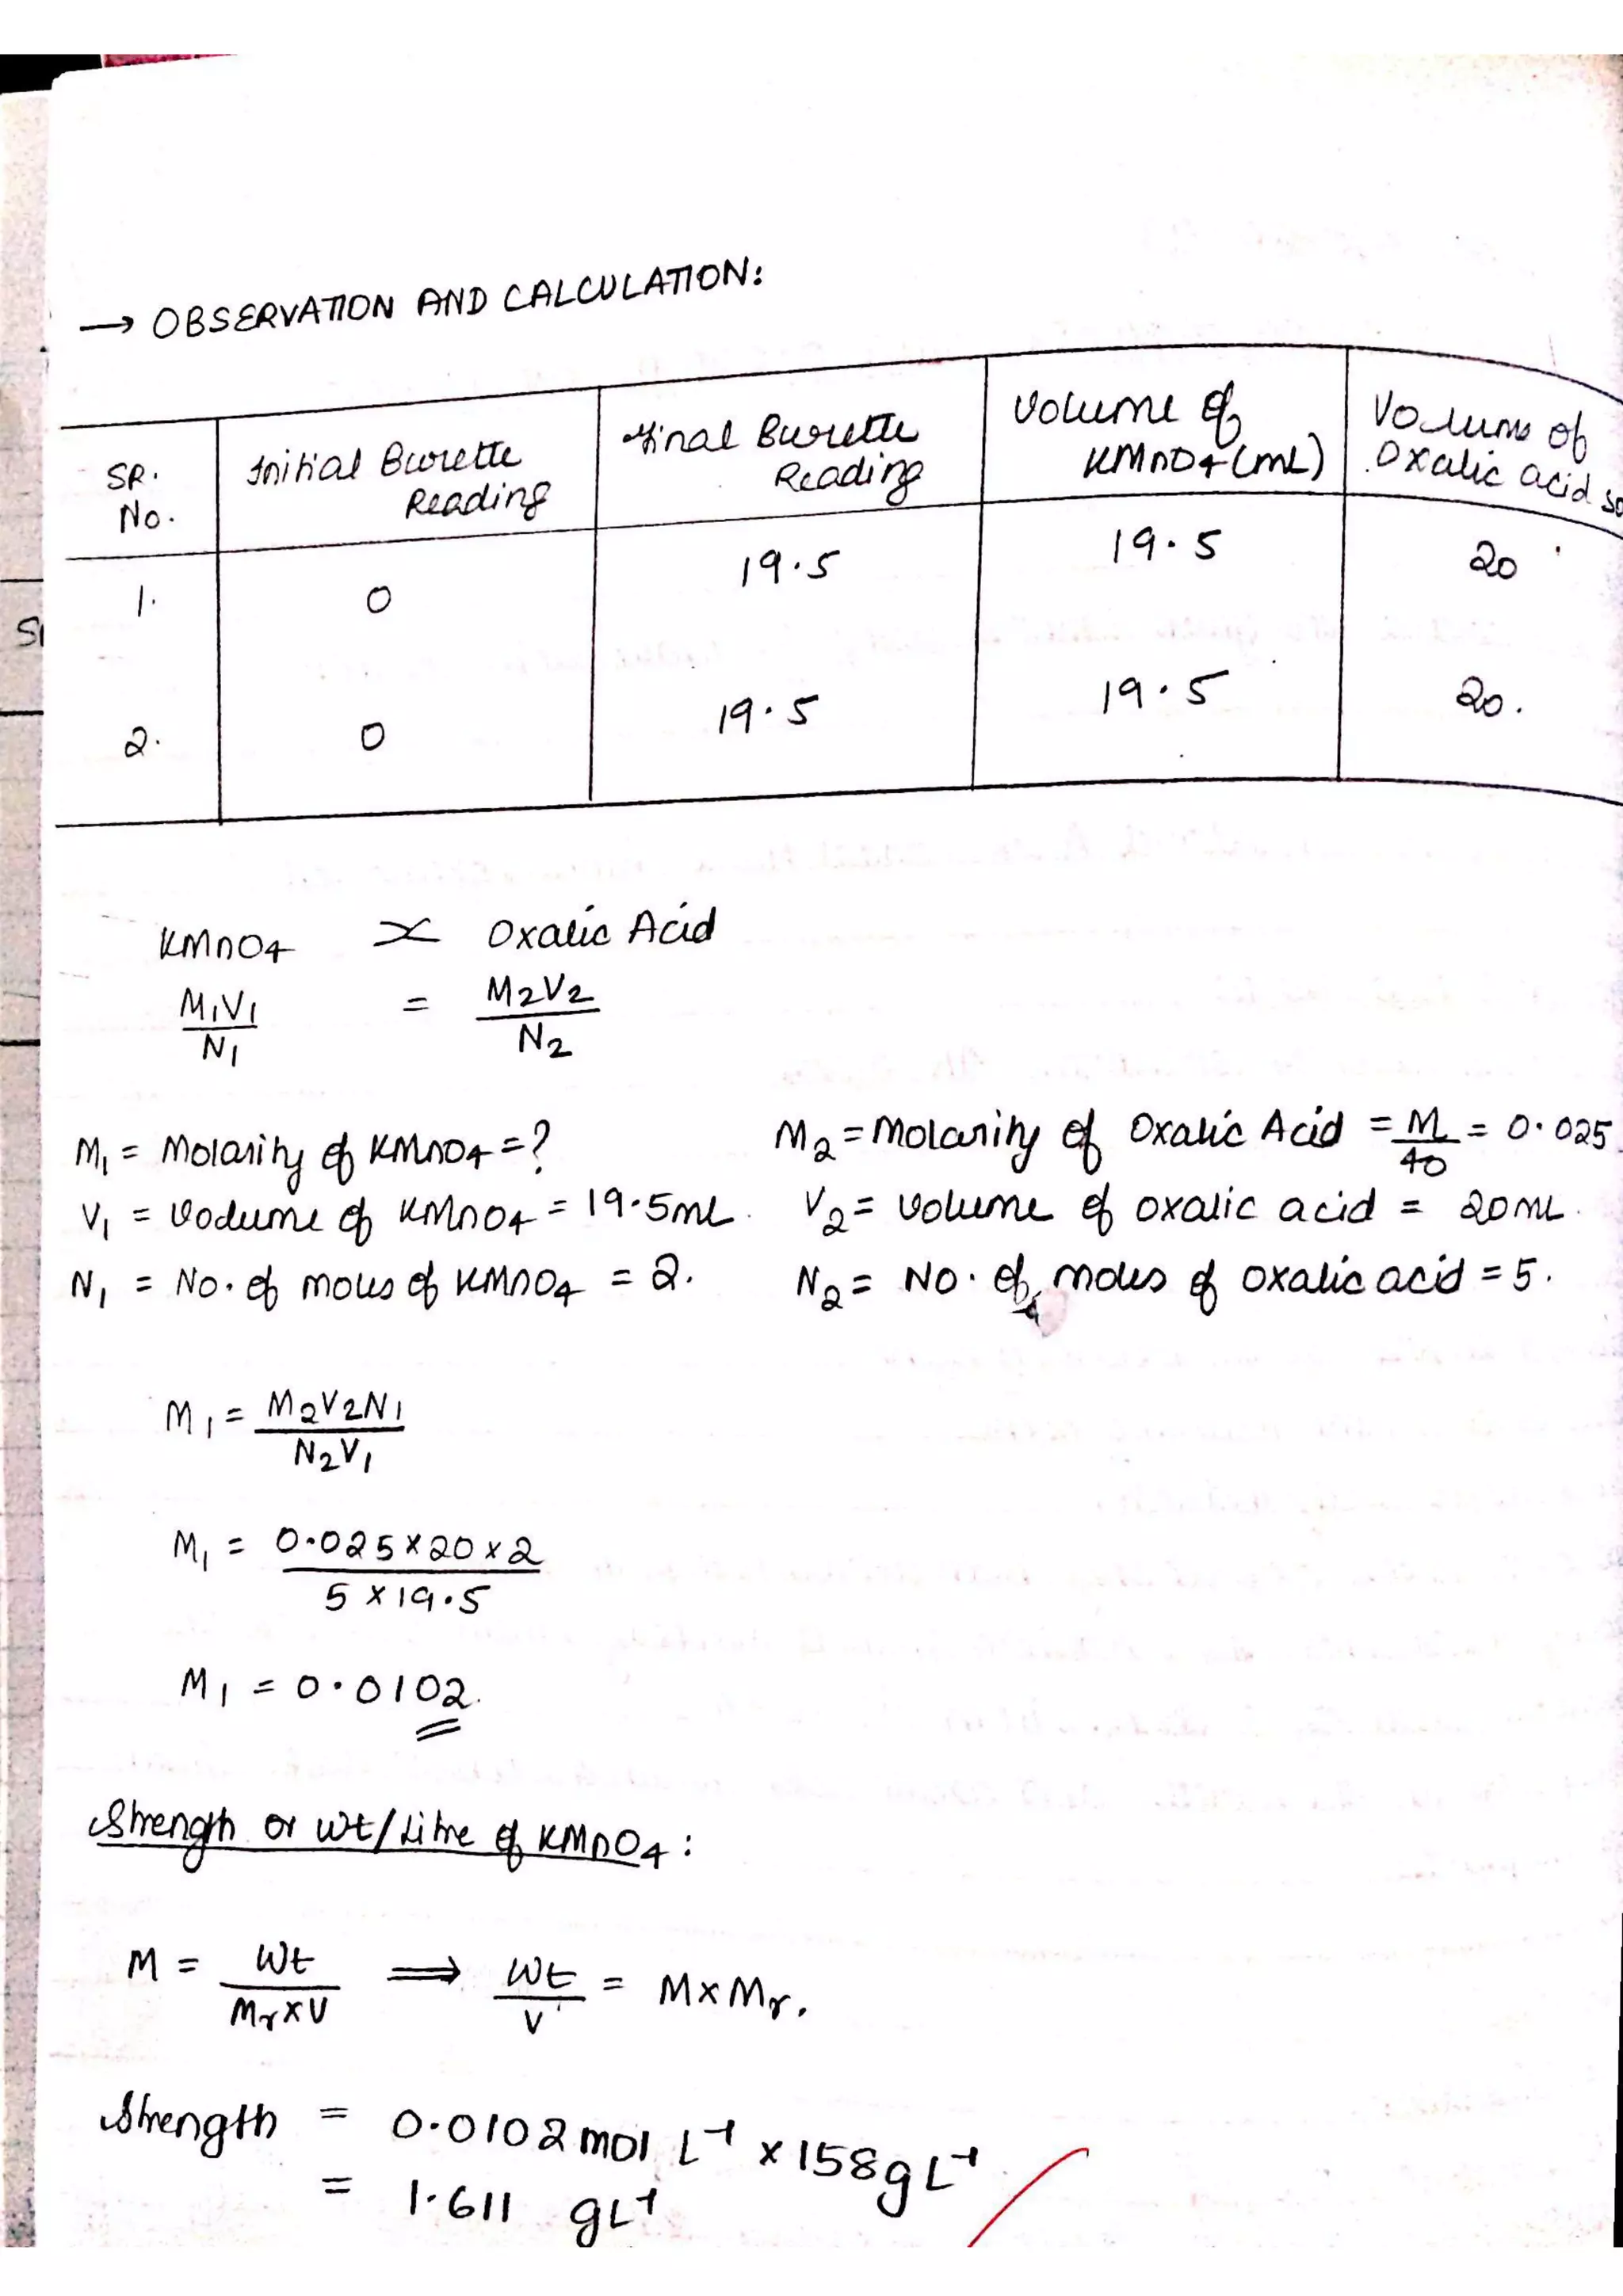 → OBSERVATION AND CALCULATION:
SR. No. | Initial Burette Reading | Final Burette Reading | Volume of KMnO4 (mL) | Volume of Oxalic acid
1. | 0 | 19.5 | 19.5 | 20
2. | 0 | 19.5 | 19.5 | 20.
KMnO4 Oxalic Acid
M1V1/N1 = M2V2/N2
M1 = Molarity of KMnO4 = ? M2 = Molarity of Oxalic Acid = M/40 = 0.025
V1 = Volume of KMnO4 = 19.5mL. V2 = volume of oxalic acid = 20mL.
N1 = No. of moles of KMnO4 = 2. N2 = No. of moles of oxalic acid = 5.
M1 = M2V2N1/N2V1
M1 = 0.025 x 20 x 2/5 x 19.5
M1 = 0.0102.
Strength or wt/Litre of KMnO4 :
M = Wt/Mr x V ⟹ Wt/V = M x Mr.
Strength = 0.0102 mol L⁻¹ x 158 g L⁻¹
= 1.611 gL⁻¹